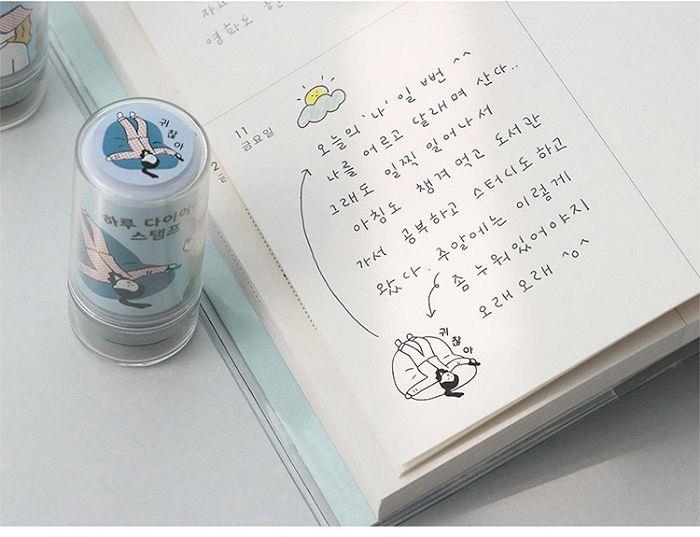 영화도
11
금요일
오늘의 '나' 일 뻔 ^^
나를 어르고 달래며 산다..
그래도 일찍 일어나서
아침도 챙겨 먹고 도서관
가서 공부하고 스터디도 하고
왔다. 주말에는 이렇게
좀 누워있어야지
오래오래 ^ㅇ^
귀찮아
2
귀찮아
하루 다이어리
스탬프